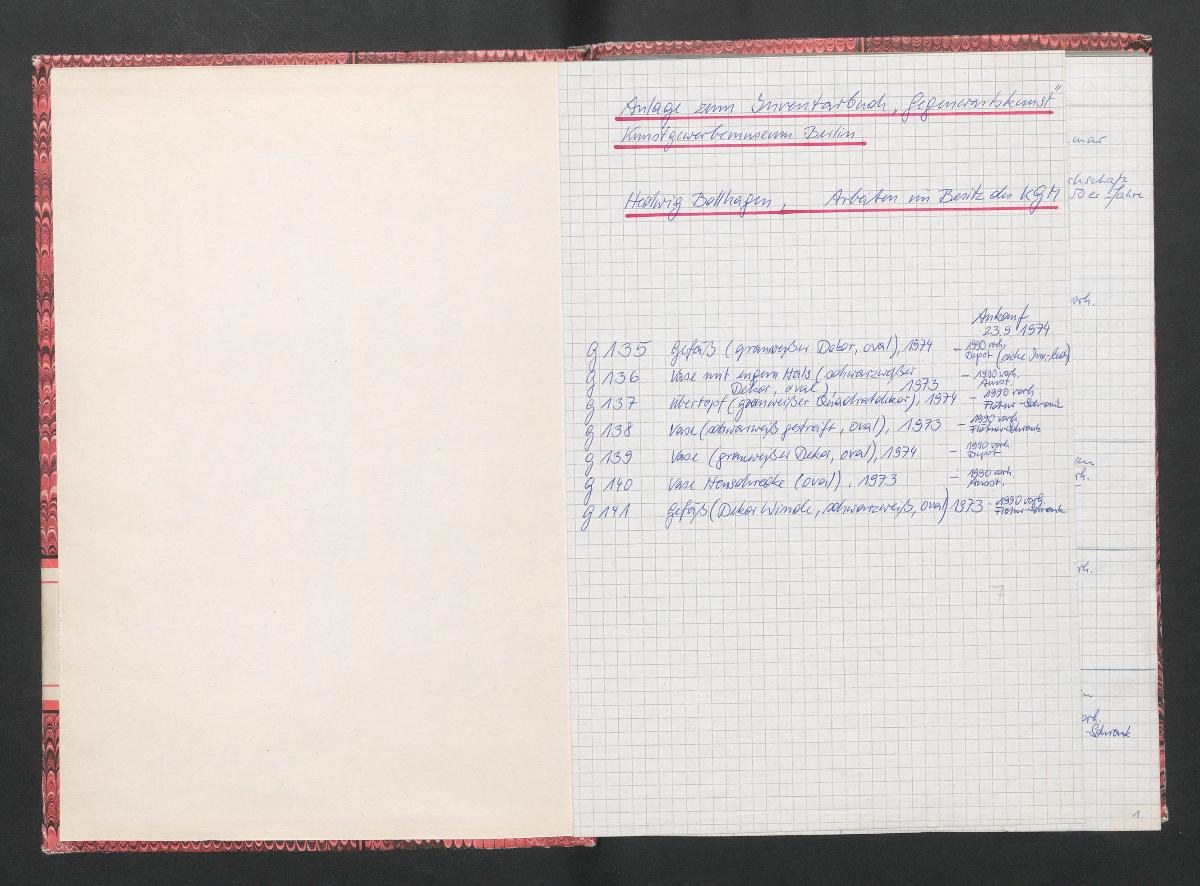 Anlage zum Inventarbuch „Gegenwartskunst"
Kunstgewerbemuseum Berlin
Hedwig Bollhagen, Arbeiten im Besitz des KGM
Ankauf
23.9.1974
G 135 Gefäß (grauweißer Dekor, oval), 1974 – 1990 vorh.
Depot (siehe Inv.-buch)
G 136 Vase mit engem Hals (schwarzweißer – 1990 vorh.
Dekor, oval), 1973 Ausst.
G 137 Übertopf (grauweißer Quadratdekor), 1974 – 1990 vorh.
Flötner-Schrank
G 138 Vase (schwarzweiß gestreift, oval), 1973 – 1990 vorh.
Flötner-Schrank
G 139 Vase (grauweißer Dekor, oval), 1974 – 1990 vorh.
Depot
G 140 Vase Heuschrecke (oval), 1973 – 1990 vorh.
Ausst.
G 141 Gefäß (Dekor Winde, schwarzweiß, oval) 1973 – 1990 vorh.
Flötner-Schrank
7
mar
chschaft
50er Jahre
orh.
en
rh.
rh.
orh.
-Schrank
1